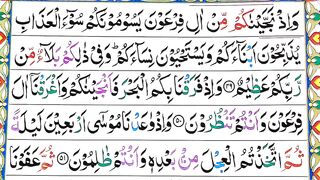 وَاِذْ نَجَّيْنٰكُمْ مِّنْ اٰلِ فِرْعَوْنَ يَسُوْمُوْنَكُمْ سُوْٓءَ الْعَذَابِ
يُذَبِّحُوْنَ اَبْنَآءَكُمْ وَيَسْتَحْيُوْنَ نِسَآءَكُمْ ؕ وَفِيْ ذٰلِكُمْ بَلَآءٌ مِّنْ
رَّبِّكُمْ عَظِيْمٌ ﴿۴۹﴾ وَاِذْ فَرَقْنَا بِكُمُ الْبَحْرَ فَاَنْجَيْنٰكُمْ وَاَغْرَقْنَآ اٰلَ
فِرْعَوْنَ وَاَنْتُمْ تَنْظُرُوْنَ ﴿۵۰﴾ وَاِذْ وٰعَدْنَا مُوْسٰٓى اَرْبَعِيْنَ لَيْلَةً
ثُمَّ اتَّخَذْتُمُ الْعِجْلَ مِنْۢ بَعْدِهٖ وَاَنْتُمْ ظٰلِمُوْنَ ﴿۵۱﴾ ثُمَّ عَفَوْنَا